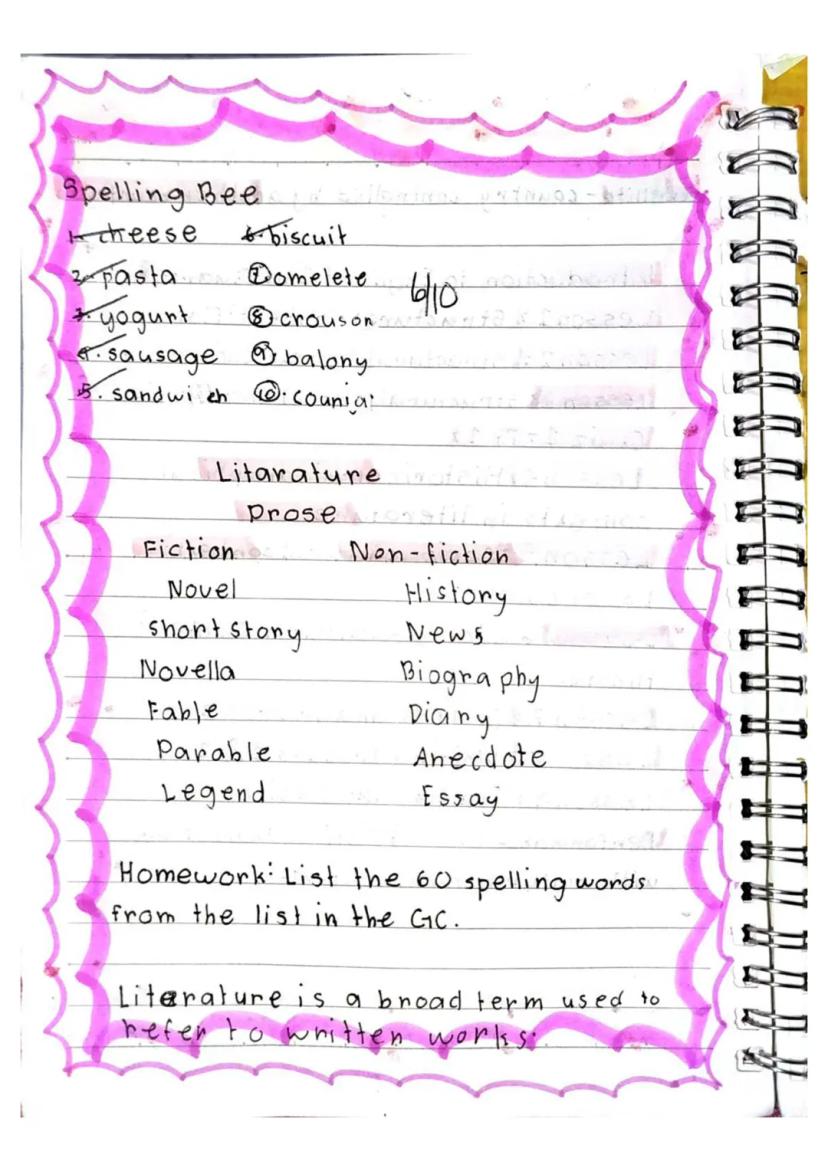 Spelling Bee
1. cheese 6. biscuit
2. pasta 7. omelete
3. yogurt 8. crouson
4. sausage 9. balony
5. sandwich 10. counia
6/10
Litarature
Prose
Fiction Non-fiction
Novel History
short story News
Novella Biography
Fable Diary
Parable Anecdote
Legend Essay
Homework: List the 60 spelling words
from the list in the GC.
Literature is a broad term used to
refer to written works.